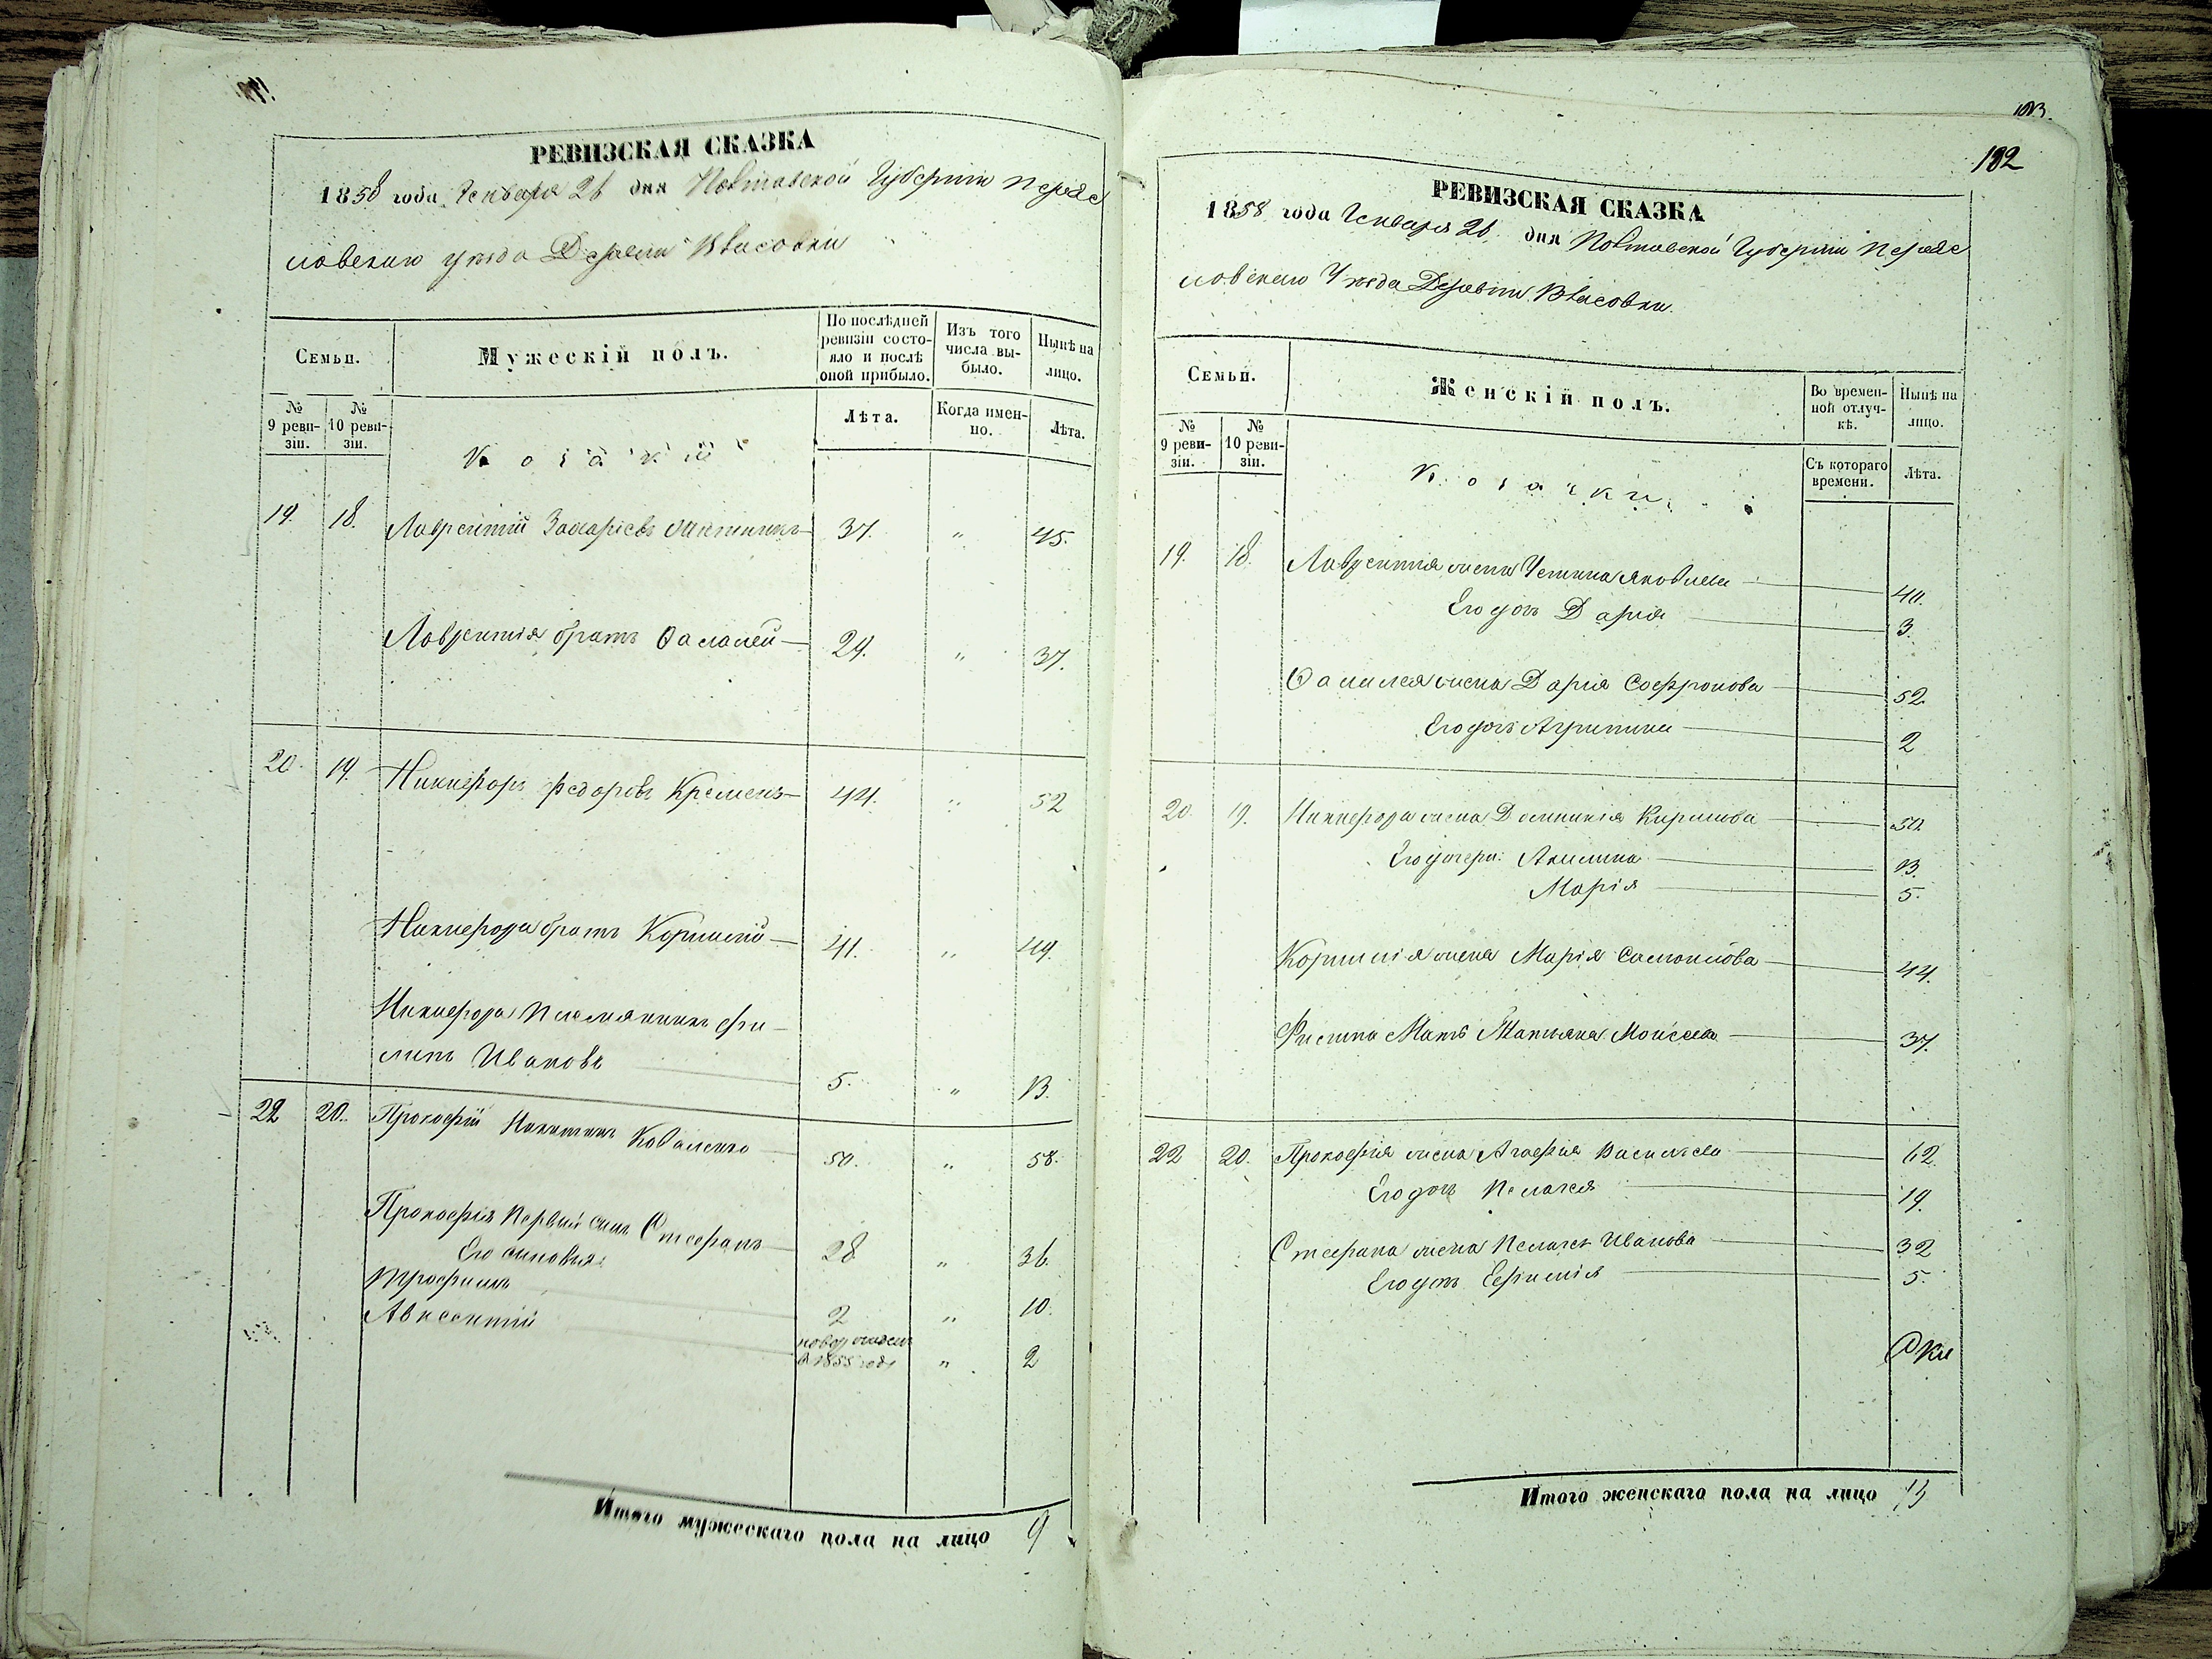 РЕВИЗСКАЯ СКАЗКА
1858 года Генваря 26 дня Полтавской Губерніи Переяс
ловскаго уѣзда Деревни Власовки
Семьи.
Мужескій полъ.
По послѣдней ревизіи состояло и послѣ оной прибыло.
Изъ того числа выбыло.
Нынѣ на лицо.
№ 9 ревизіи.
№ 10 ревизіи.
Козаки
Лѣта.
Когда именно.
Лѣта.
19. 18. Лаврентій Захаріевъ 37. " 45.
Лаврентія братъ Фалалей 29. " 37.
20. 19. Никифоръ Федоровъ Кремень 44. " 52
Никифора братъ Корнилій 41. " 49.
Никифора племянникъ Фи-
липъ Ивановъ 5. " 13.
22 20. Прокофій Никитинъ Коваленко 50. " 58.
Прокофія первый сынъ Стефанъ 28 " 36.
Его сыновья:
Трофимъ 2 " 10.
Авксентій новорожден
въ 1855 году " 2
Итого мужескаго пола на лицо 9
182
РЕВИЗСКАЯ СКАЗКА
1858 года Генваря 26. дня Полтавской Губерніи Переяс
ловскаго Уѣзда Деревни Власовки.
Семьи.
Женскій полъ.
Во временной отлучкѣ.
Нынѣ на лицо.
№ 9 ревизіи.
№ 10 ревизіи.
Козачки
Съ котораго времени.
Лѣта.
19. 18. Лаврентія жена Устина Яковлева 40.
Его дочь Дарія 3.
Фалалея жена Дарія Софронова 52
Его дочь Агрипина 2
20. 19. Никифора жена Домникія Кирилова 50
Его дочери: Акилина 13.
Марія 5.
Корнилія жена Марія Самойлова 44.
Филипа Мать Татьяна Моисеева 37.
22 20. Прокофія жена Агафія Васильева 62
Его дочь Пелагея 19.
Стефана жена Пелагея Иванова 32
Его дочь Ефимія 5.
Итого женскаго пола на лицо 13